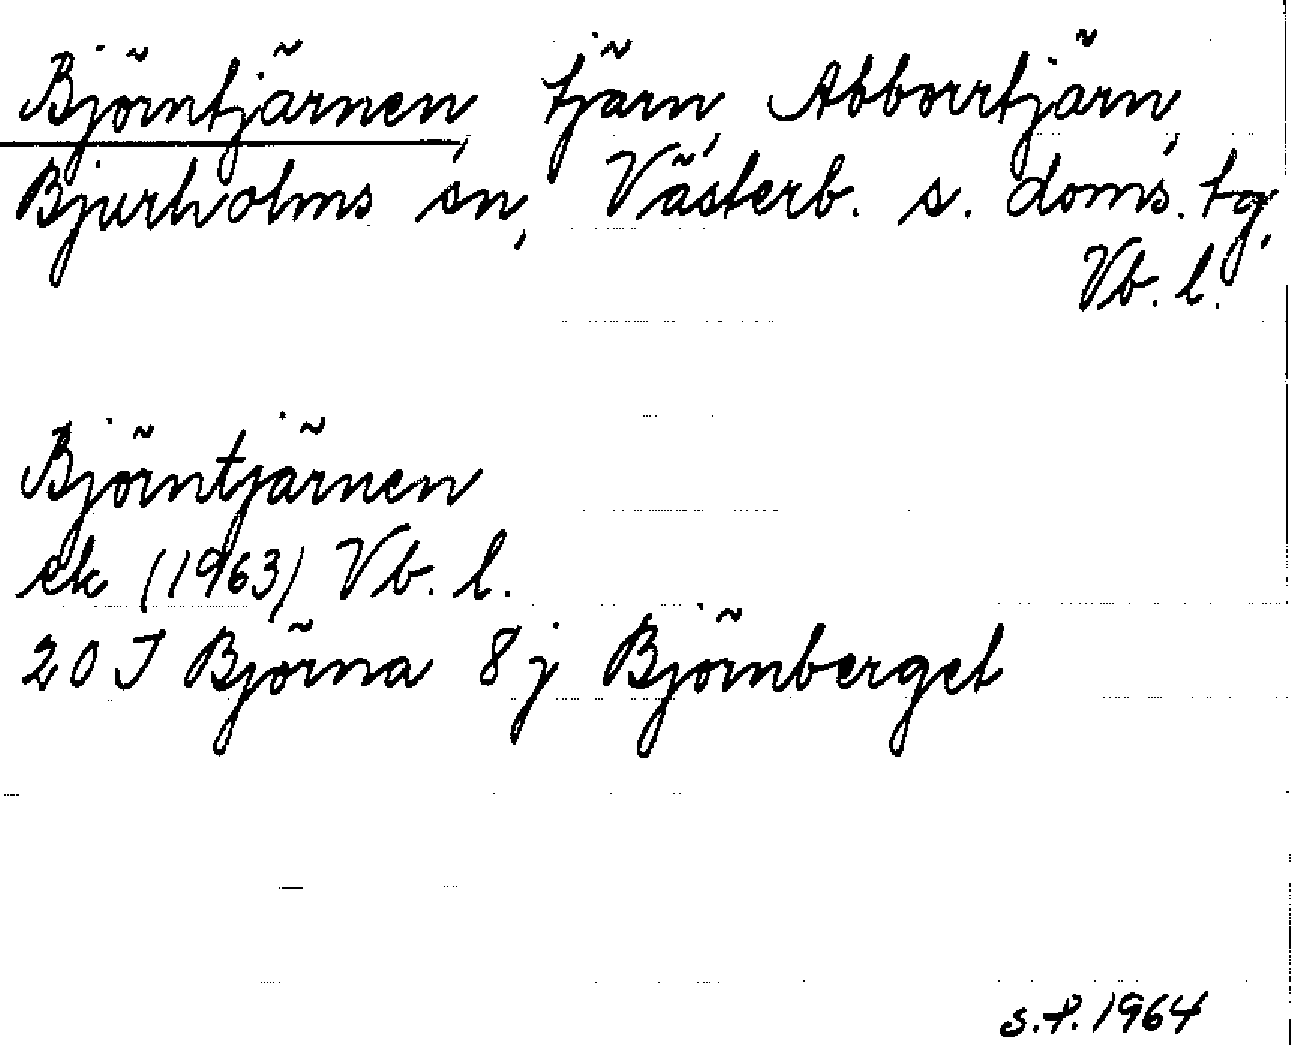 Björntjärnen, tjärn, Abborrtjärn,
Bjurholms sn, Västerb. s. doms. tg,
Vb. l.
Björntjärnen
ek (1963) Vb. l.
20 J Björna 8 j Björnberget
s.f. 1964